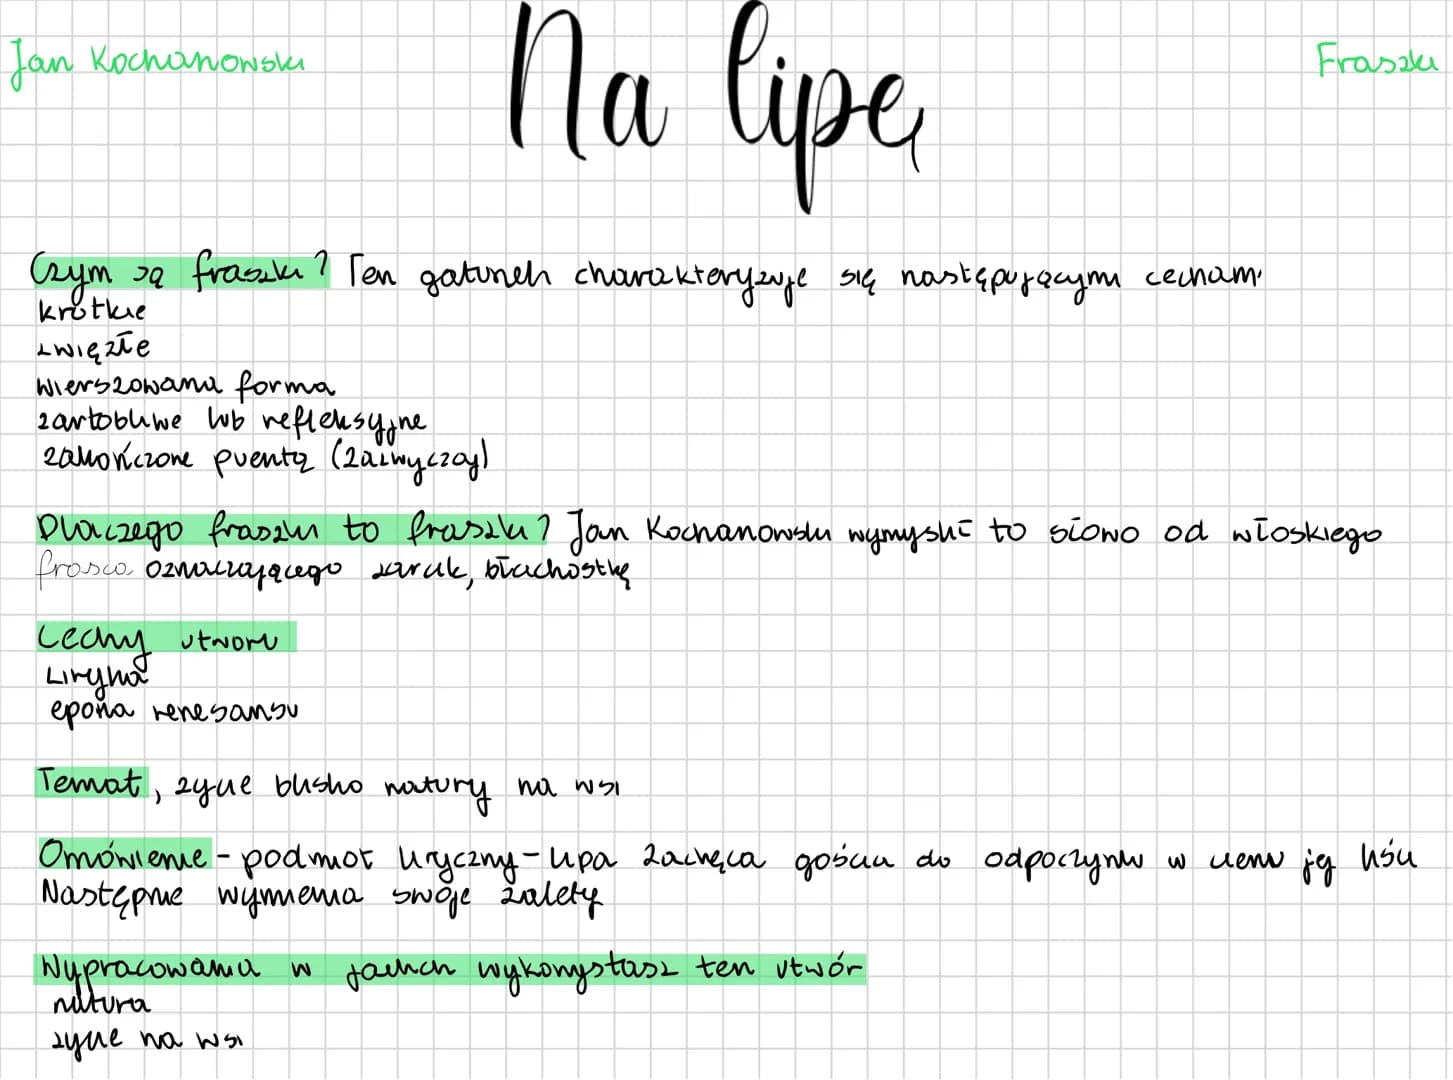 Jan Kochanowski
Na lipę
Fraszki
Czym są fraszki? Ten gatunek charakteryzuje się następującymi cechami
krótkie
zwięzłe
wierszowana forma
żartobliwe lub refleksyjne
zakończone puentą (zazwyczaj)
Dlaczego fraszki to fraszki? Jan Kochanowski wymyślił to słowo od włoskiego
frasca oznaczającego żarcik, błachostkę
Cechy utworu
Liryka
epoka renesansu
Temat, życie blisko natury na wsi
Omówienie - podmiot liryczny - lipa zachęca gościa do odpoczynku w cieniu jej liści
Następnie wymienia swoje zalety
Wypracowania w jakich wykorzystasz ten utwór
natura
życie na wsi